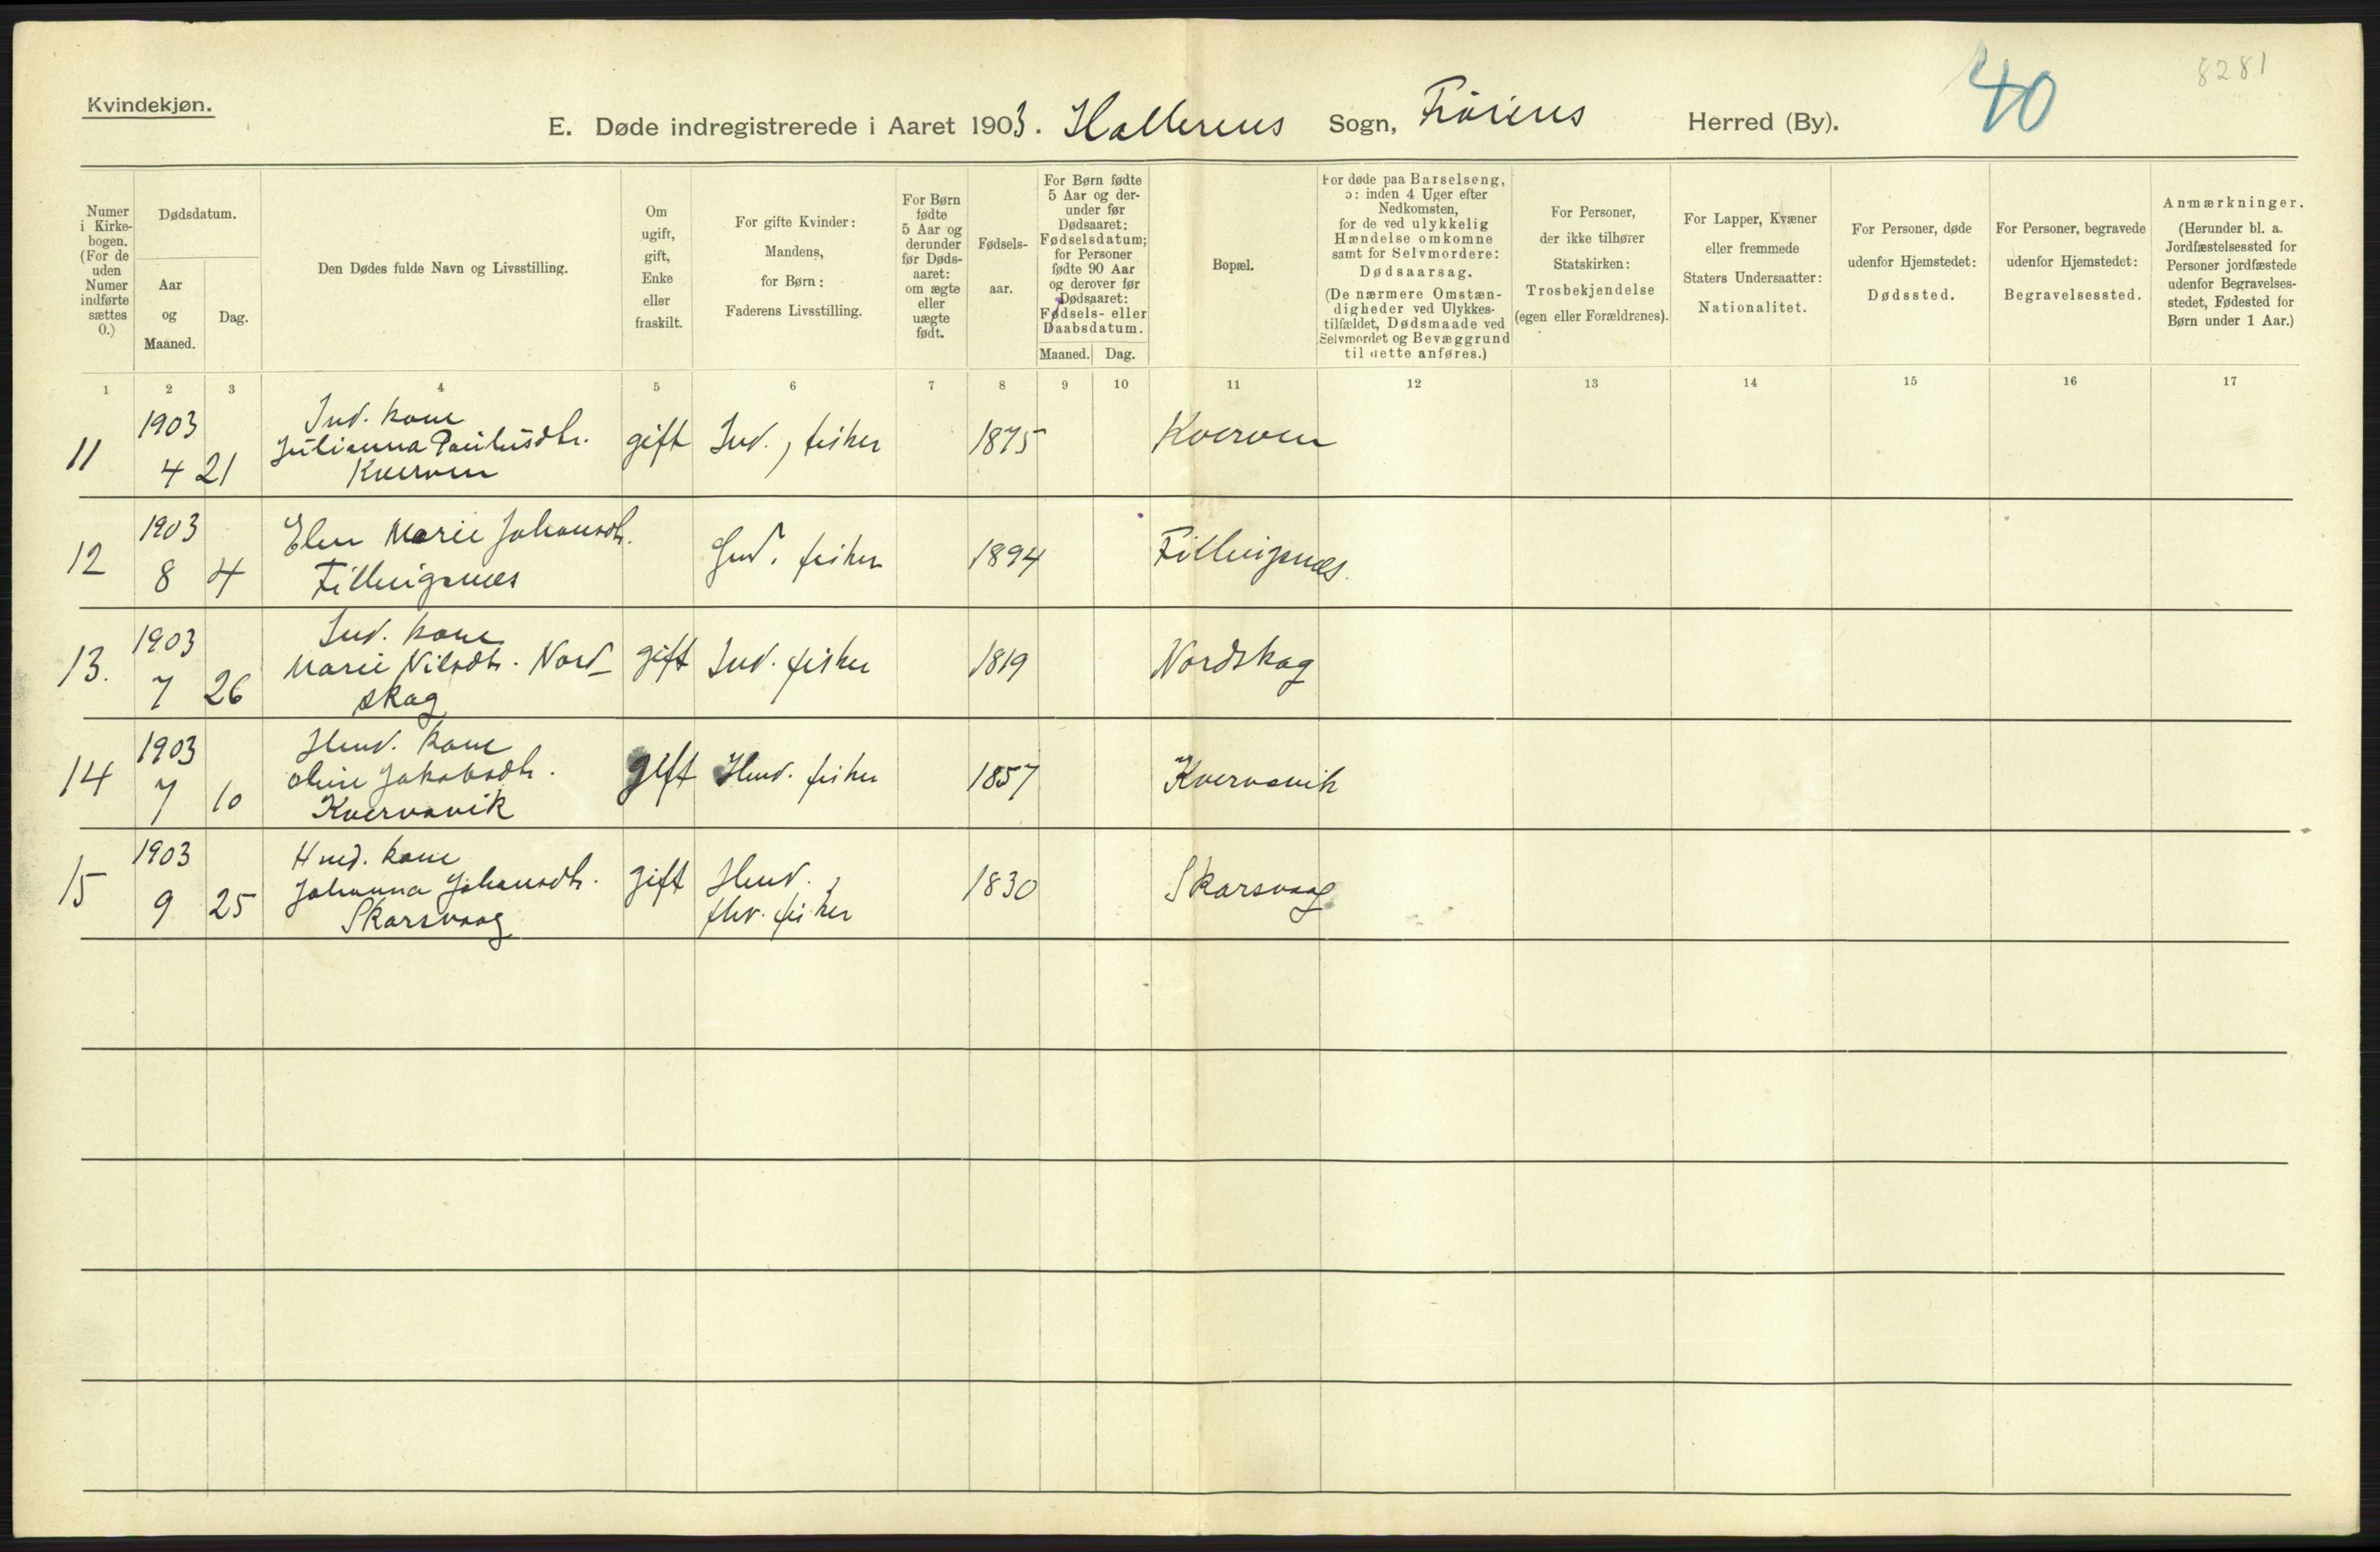 Kvindekjøn.
8281
40
E. Døde indregistrerede i Aaret 1903. Hallerens Sogn, Frøiens Herred (By).
Numer i Kirke-bogen. (For de uden Numer indførte sættes 0.)
Dødsdatum.
Aar og Maaned.
Dag.
Den Dødes fulde Navn og Livsstilling.
Om ugift, gift, Enke eller fraskilt.
For gifte Kvinder: Mandens, for Børn: Faderens Livsstilling.
For Børn fødte 5 Aar og derunder før Døds-aaret: om ægte eller uægte født.
Fødsels-aar.
For Børn fødte 5 Aar og der-under før Dødsaaret: Fødselsdatum; for Personer fødte 90 Aar og derover før Dødsaaret: Fødsels- eller Daabsdatum.
Maaned. Dag.
Bopæl.
For døde paa Barselseng, ɔ: inden 4 Uger efter Nedkomsten, for de ved ulykkelig Hændelse omkomne samt for Selvmordere: Dødsaarsag. (De nærmere Omstæn-digheder ved Ulykkes-tilfældet, Dødsmaade ved Selvmordet og Bevæggrund til dette anføres.)
For Personer, der ikke tilhører Statskirken: Trosbekjendelse (egen eller Forældrenes).
For Lapper, Kvæner eller fremmede Staters Undersaatter: Nationalitet.
For Personer, døde udenfor Hjemstedet: Dødssted.
For Personer, begravede udenfor Hjemstedet: Begravelsessted.
Anmærkninger. (Herunder bl. a. Jordfæstelsessted for Personer jordfæstede udenfor Begravelses-stedet, Fødested for Børn under 1 Aar.)
1 2 3 4 5 6 7 8 9 10 11 12 13 14 15 16 17
1903 Ind. kone
11 4 21 Julianna Paulusdtr. gift Ind., fisker 1875 Kverven
Kverven
1903 Elen Marie Johansdtr.
12 8 4 Fillingsnes Ind. fisker 1894 Fillingsnæs.
1903 Ind. kone
13. 7 26 Marie Nilsdtr. Nord- gift Ind. fisker 1819 Nordskag
skag
1903 Hmd. kone
14 7 10 Oline Jakobsdtr. gift Hmd. fisker 1857 Kvervavik
Kvervavik
1903 Hmd. kone
15 9 25 Johanna Johansdtr. gift Hmd., 1830 Skarsvaag
Skarsvaag fhv. fisker